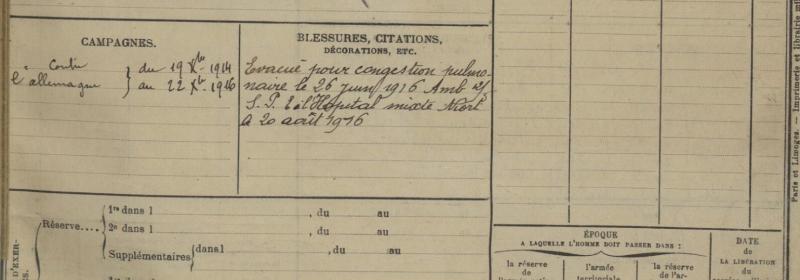 CAMPAGNES.
Contre
l'allemagne
du 19 Xbre 1914
au 22 Xbre 1916
BLESSURES, CITATIONS,
DÉCORATIONS, ETC.
Evacué pour congestion pulmo-
naire le 26 juin 1916 Amb
S. P. Hopital mixte Niort
20 août 1916
Réserve....
1re dans l , du au
2e dans l , du au
Supplémentaires dans l , du au
D'EXER-
ÉPOQUE
A LAQUELLE L'HOMME DOIT PASSER DANS :
la réserve
de
l'armée
territoriale
la réserve
de l'ar-
DATE
de
LA LIBÉRATION
du
Paris et Limoges. — Imprimerie et librairie